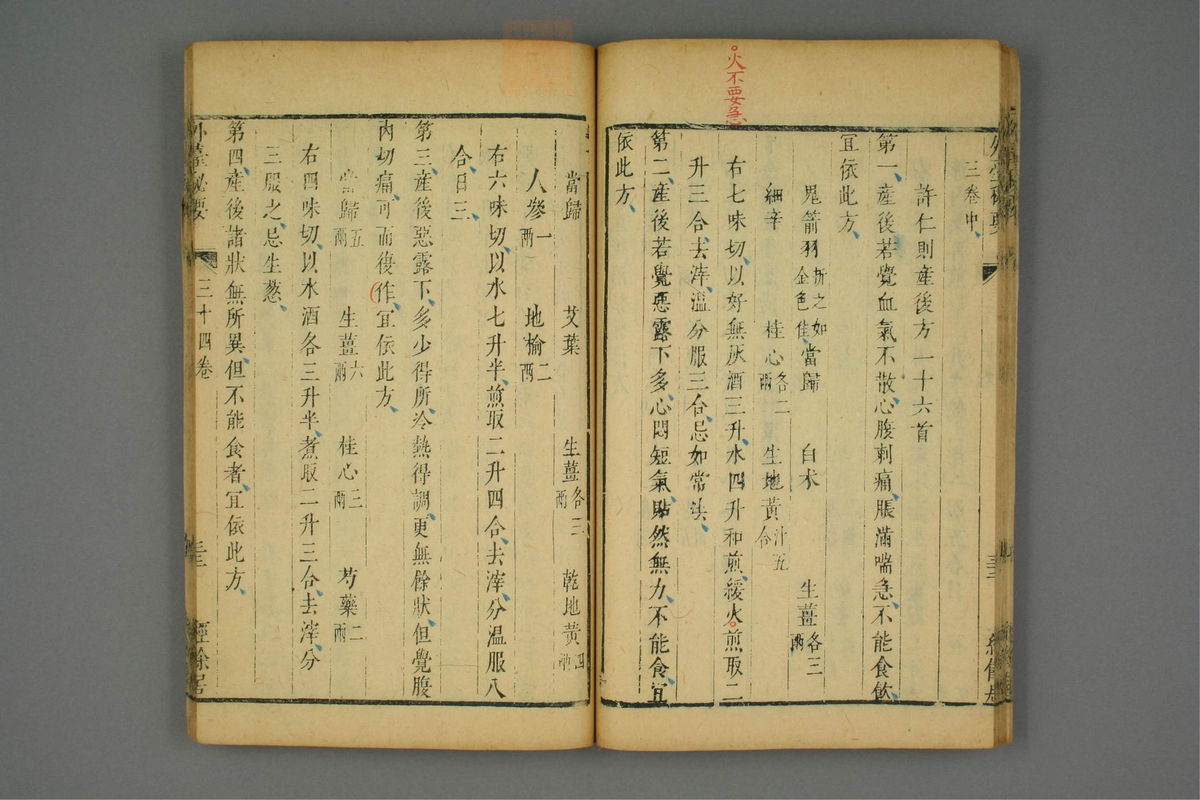 火不要急
三卷中
許仁則產後方一十六首
第一產後若覺血氣不散心腹刺痛脹滿喘急不能食飲
宜依此方
鬼箭羽折之如金色佳 當歸 白朮 生薑各三兩
細辛 桂心各二兩 生地黃汁五合
右七味切以好無灰酒三升水四升和煎緩火煎取二
升三合去滓溫分服三合忌如常法
第二產後若覺惡露下多心悶短氣貼然無力不能食宜
依此方
當歸 艾葉 生薑各三兩 乾地黃四兩
人參一兩 地榆二兩
右六味切以水七升半煎取二升四合去滓分溫服八
合日三
第三產後惡露下多少得所冷熱得調更無餘狀但覺腹
內切痛可而復作宜依此方
當歸五兩 生薑六兩 桂心三兩 芍藥二兩
右四味切以水酒各三升半煮取二升三合去滓分
三服之忌生蔥
第四產後諸狀無所異但不能食者宜依此方
外臺祕要 三十四卷 經餘居